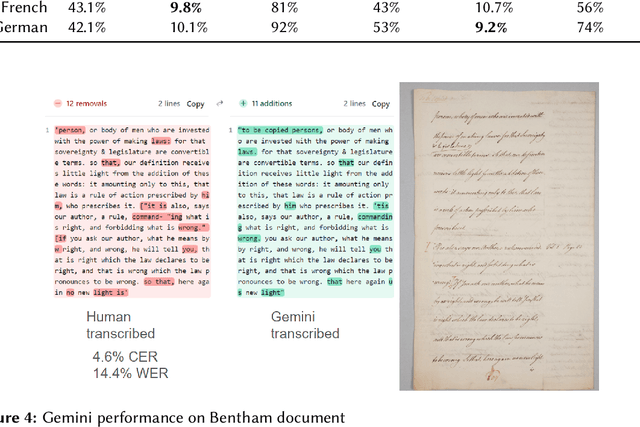 French 43.1% 9.8% 81% 43% 10.7% 56%
German 42.1% 10.1% 92% 53% 9.2% 74%
12 removals 2 lines Copy
11 additions 2 lines Copy
1 "person, or body of men who are invested
with the power of making laws: for that
sovereignty & legislature are convertib
le terms. so that, our definition receive
s little light from the addition of thes
e words: it amounting only to this, that
law is a rule of action prescribed by hi
m, who prescribes it. ["it is also, says
our author, a rule, command- "ing what i
s right, and forbidding what is wrong."
[if you ask our author, what he means by
right, and wrong, he will tell you, th
at is right which the law declares to be
right, and that is wrong which the law p
ronounces to be wrong. so that, here aga
in no new light is'
1 "to be copied persons, or body of men wh
o are invested with the power of making
laws. for that sovereignty & legislature
are convertible terms. so that our defin
ition receives little light from the add
ition of these words: it amounting only
to this, that law is a rule of action pr
escribed by him who prescribes it. 'tis
also, says our author, a rule, commandin
g what is right, and forbidding what is
wrong. you ask our author, what he means
by right, and wrong, he will tell you
that is right which the law declares to
be right, and that is wrong which the la
w pronounces to be wrong. that here again u
s new light"
Human
transcribed
4.6% CER
14.4% WER
Gemini
transcribed
ure 4: Gemini performance on Bentham document